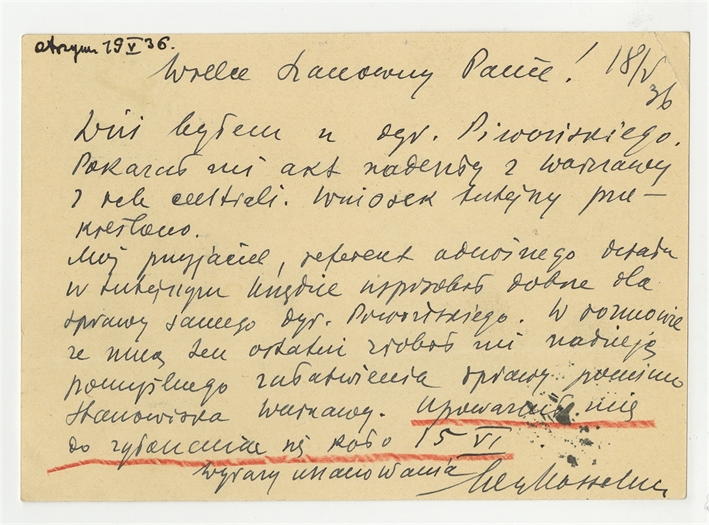 otrzym 19 V 36.
Wielce Szanowny Panie! 18/V
36
Dziś byłem u dyr. Piwońskiego.
Pokazał mi akt nadesłany z Warszawy
z centrali. Wniosek tutejszy prze-
kreślono.
Mój przyjaciel, referent odnośnego działu
w tutejszym Urzędzie usposobił dobrze dla
sprawy samego dyr. Piwońskiego. W rozmowie
ze mną ten ostatni zrobił mi nadzieję
pomyślnego załatwienia sprawy pomimo
stanowiska Warszawy. Upoważnił mię
do zgłoszenia się koło 15 VI
Wyrazy uszanowania